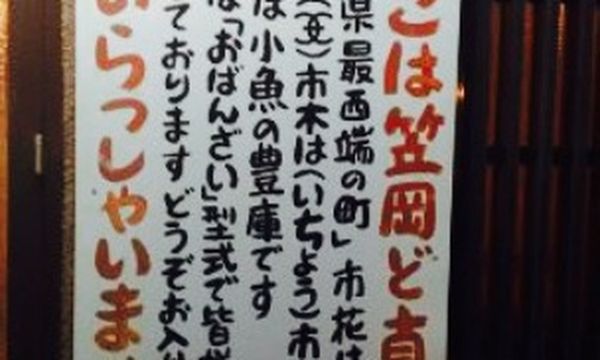 こは笠岡ど真
県最西端の町」市花は
(菊)市木は(いちょう)市
は小魚の豊庫です
は「おばんざい」型式で皆様
ておりますどうぞお入り
おらっしゃいま